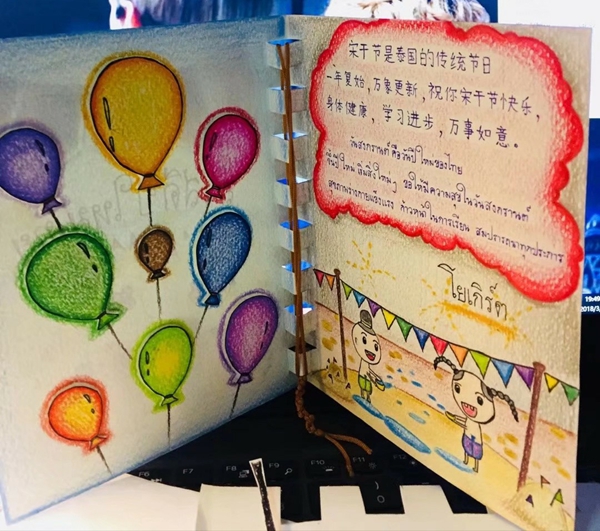 宋干节是泰国的传统节日
一年复始,万象更新,祝你宋干节快乐,
身体健康,学习进步,万事如意。
วันสงกรานต์ คือวันปีใหม่ของไทย
ขึ้นปีใหม่ เริ่มสิ่งใหม่ๆ ขอให้มีความสุขในวันสงกรานต์
สุขภาพร่างกายแข็งแรง ก้าวหน้าในการเรียน สมปรารถนาทุกประการ
โยเกิร์ต
F6 F7 F8 F9 F10 F11 F12
19:49
2018/3/